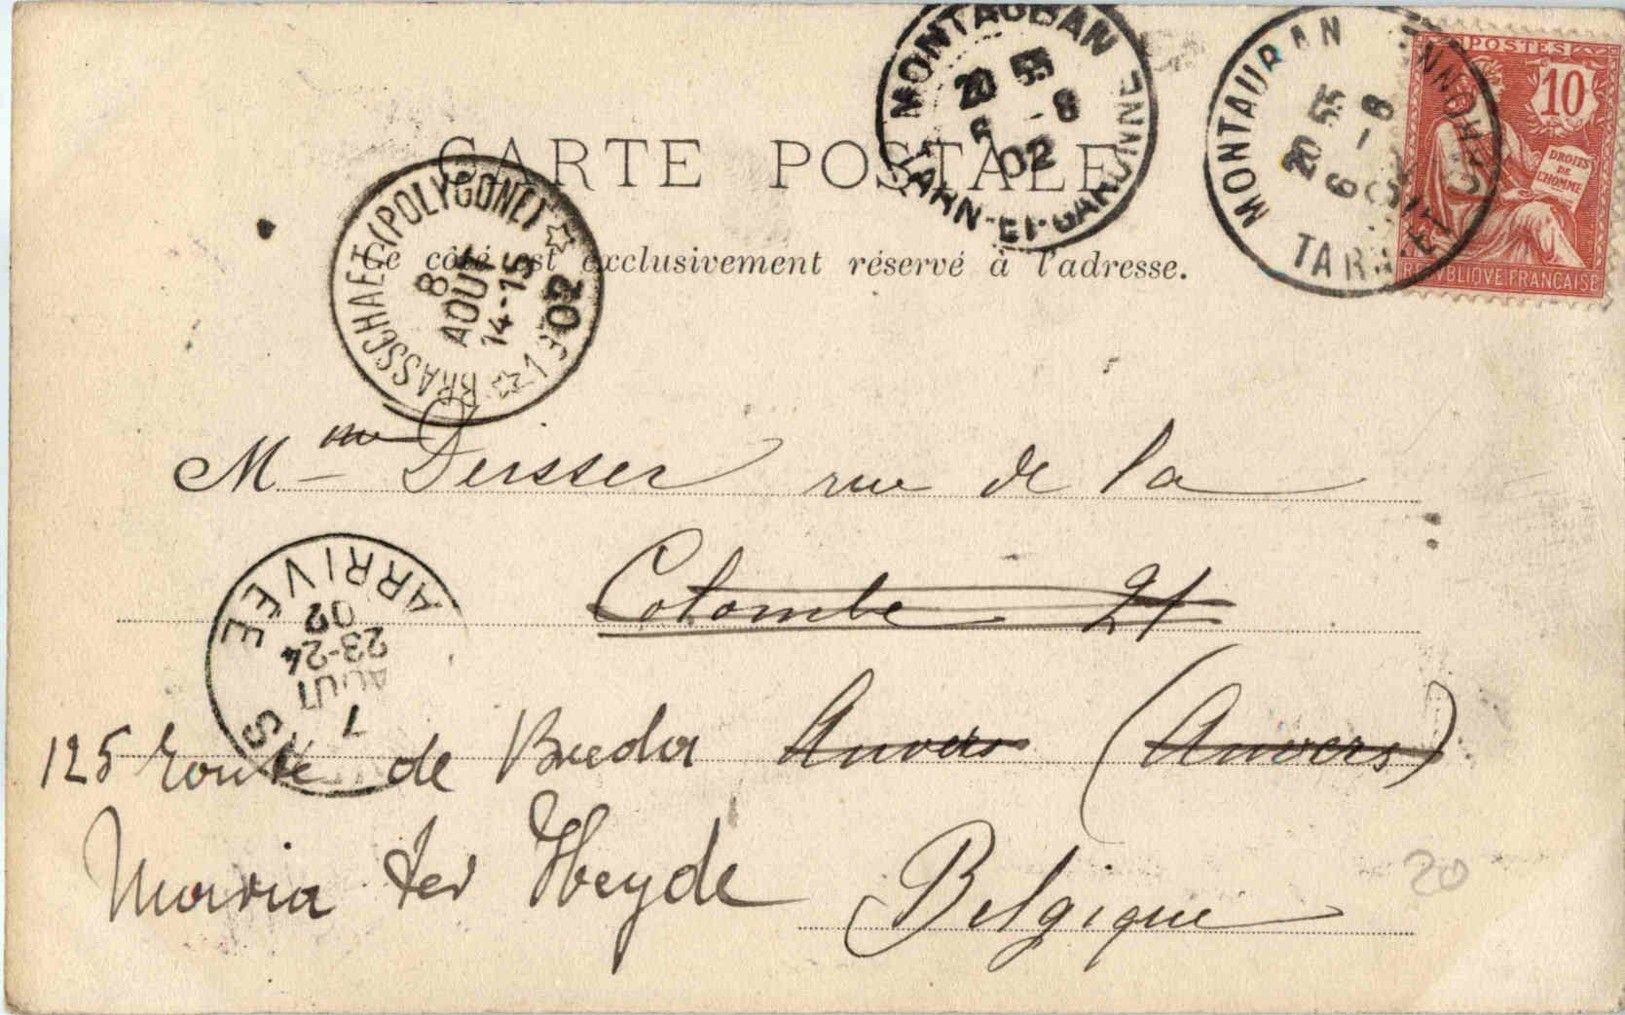 CARTE POSTALE
Ce côté est exclusivement réservé à l'adresse.
MONTAUBAN
20 55
6 -8
02
TARN-ET-GARONNE
MONTAUBAN
20 55
6 -8
TARN-ET-GARONNE
POSTES
10
DROITS
DE
L'HOMME
REPUBLIQUE FRANÇAISE
BRASSCHAET (POLYGONE)
8
AOUT
14-15
02
Mme Dersser rue de la
Colombe 21
125 route de Breda Anvers (Anvers)
Maria ter Heyde Belgique
ARRIVÉE
7
AOUT
23-24
02
20